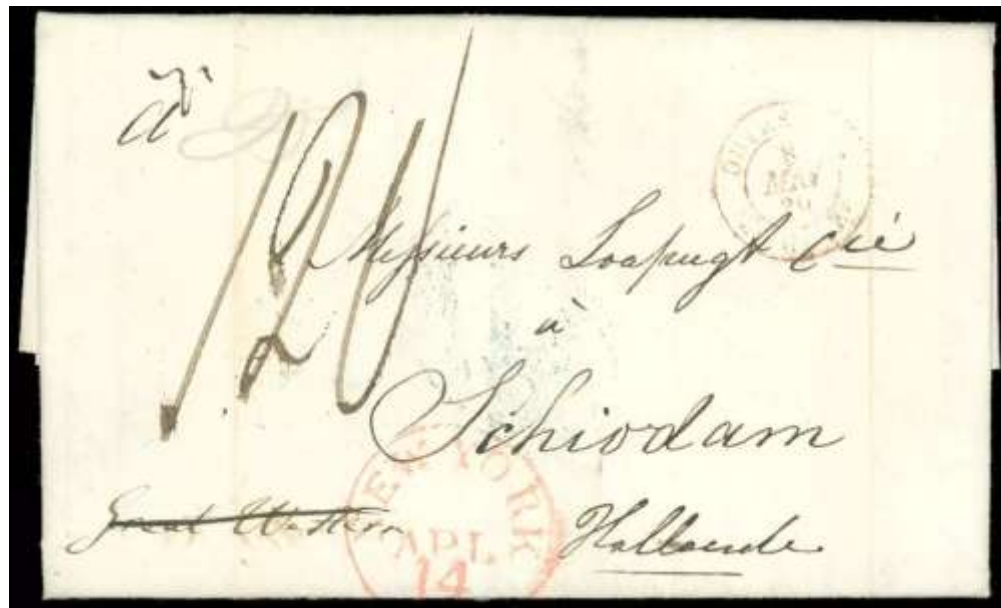 120
Messieurs Loapugt Cie
à
Schiodam
Hollande
Great Western
NEW YORK
APL
14
MAI